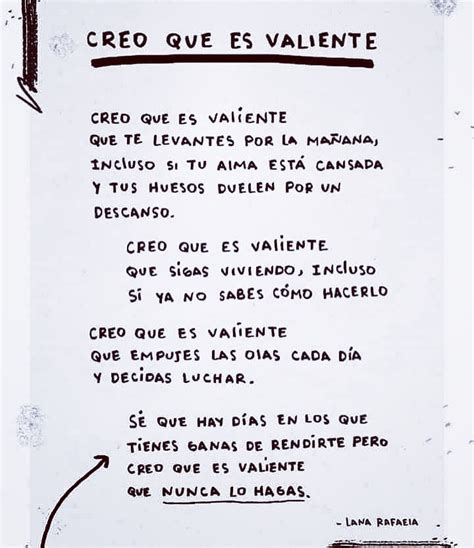 CREO QUE ES VALIENTE
CREO QUE ES VALIENTE
QUE TE LEVANTES POR LA MAÑANA,
INCLUSO SI TU ALMA ESTÁ CANSADA
Y TUS HUESOS DUELEN POR UN
DESCANSO.
CREO QUE ES VALIENTE
QUE SIGAS VIVIENDO, INCLUSO
SI YA NO SABES CÓMO HACERLO
CREO QUE ES VALIENTE
QUE EMPUJES LAS OLAS CADA DÍA
Y DECIDAS LUCHAR.
SÉ QUE HAY DÍAS EN LOS QUE
TIENES GANAS DE RENDIRTE PERO
CREO QUE ES VALIENTE
QUE NUNCA LO HAGAS.
- LANA RAFAELA